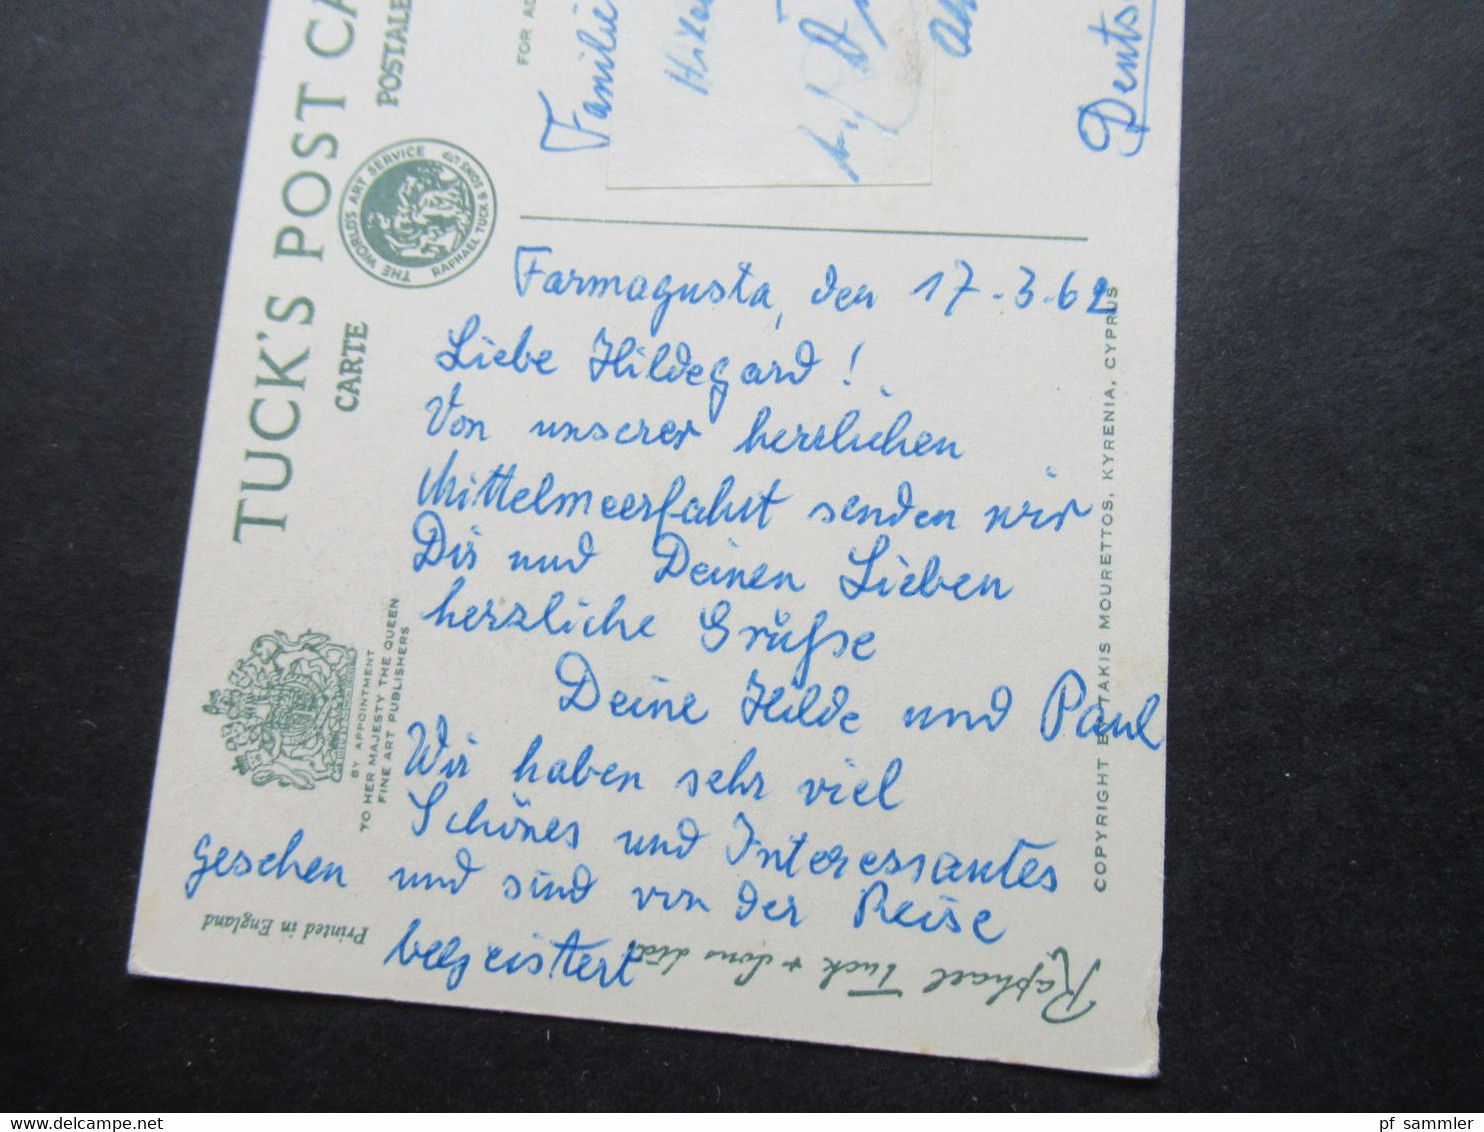 TUCK'S POST CA
CARTE
POSTALE
THE WORLD'S ART SERVICE
RAPHAEL TUCK & SONS LTD
FOR AD
Familie
Deuts
Farmagusta, den 17.3.62
Liebe Hildegard!
Von unserer herrlichen
Mittelmeerfahrt senden wir
Dir und Deinen Lieben
herzliche Grüße
Deine Hilde und Paul
Wir haben sehr viel
Schönes und Interessantes
gesehen und sind von der Reise
begeistert
BY APPOINTMENT
TO HER MAJESTY THE QUEEN
FINE ART PUBLISHERS
Printed in England
Raphael Tuck & Sons Ltd
COPYRIGHT BY TAKIS MOURETTOS, KYRENIA, CYPRUS
www.delcampe.net
pf sammler